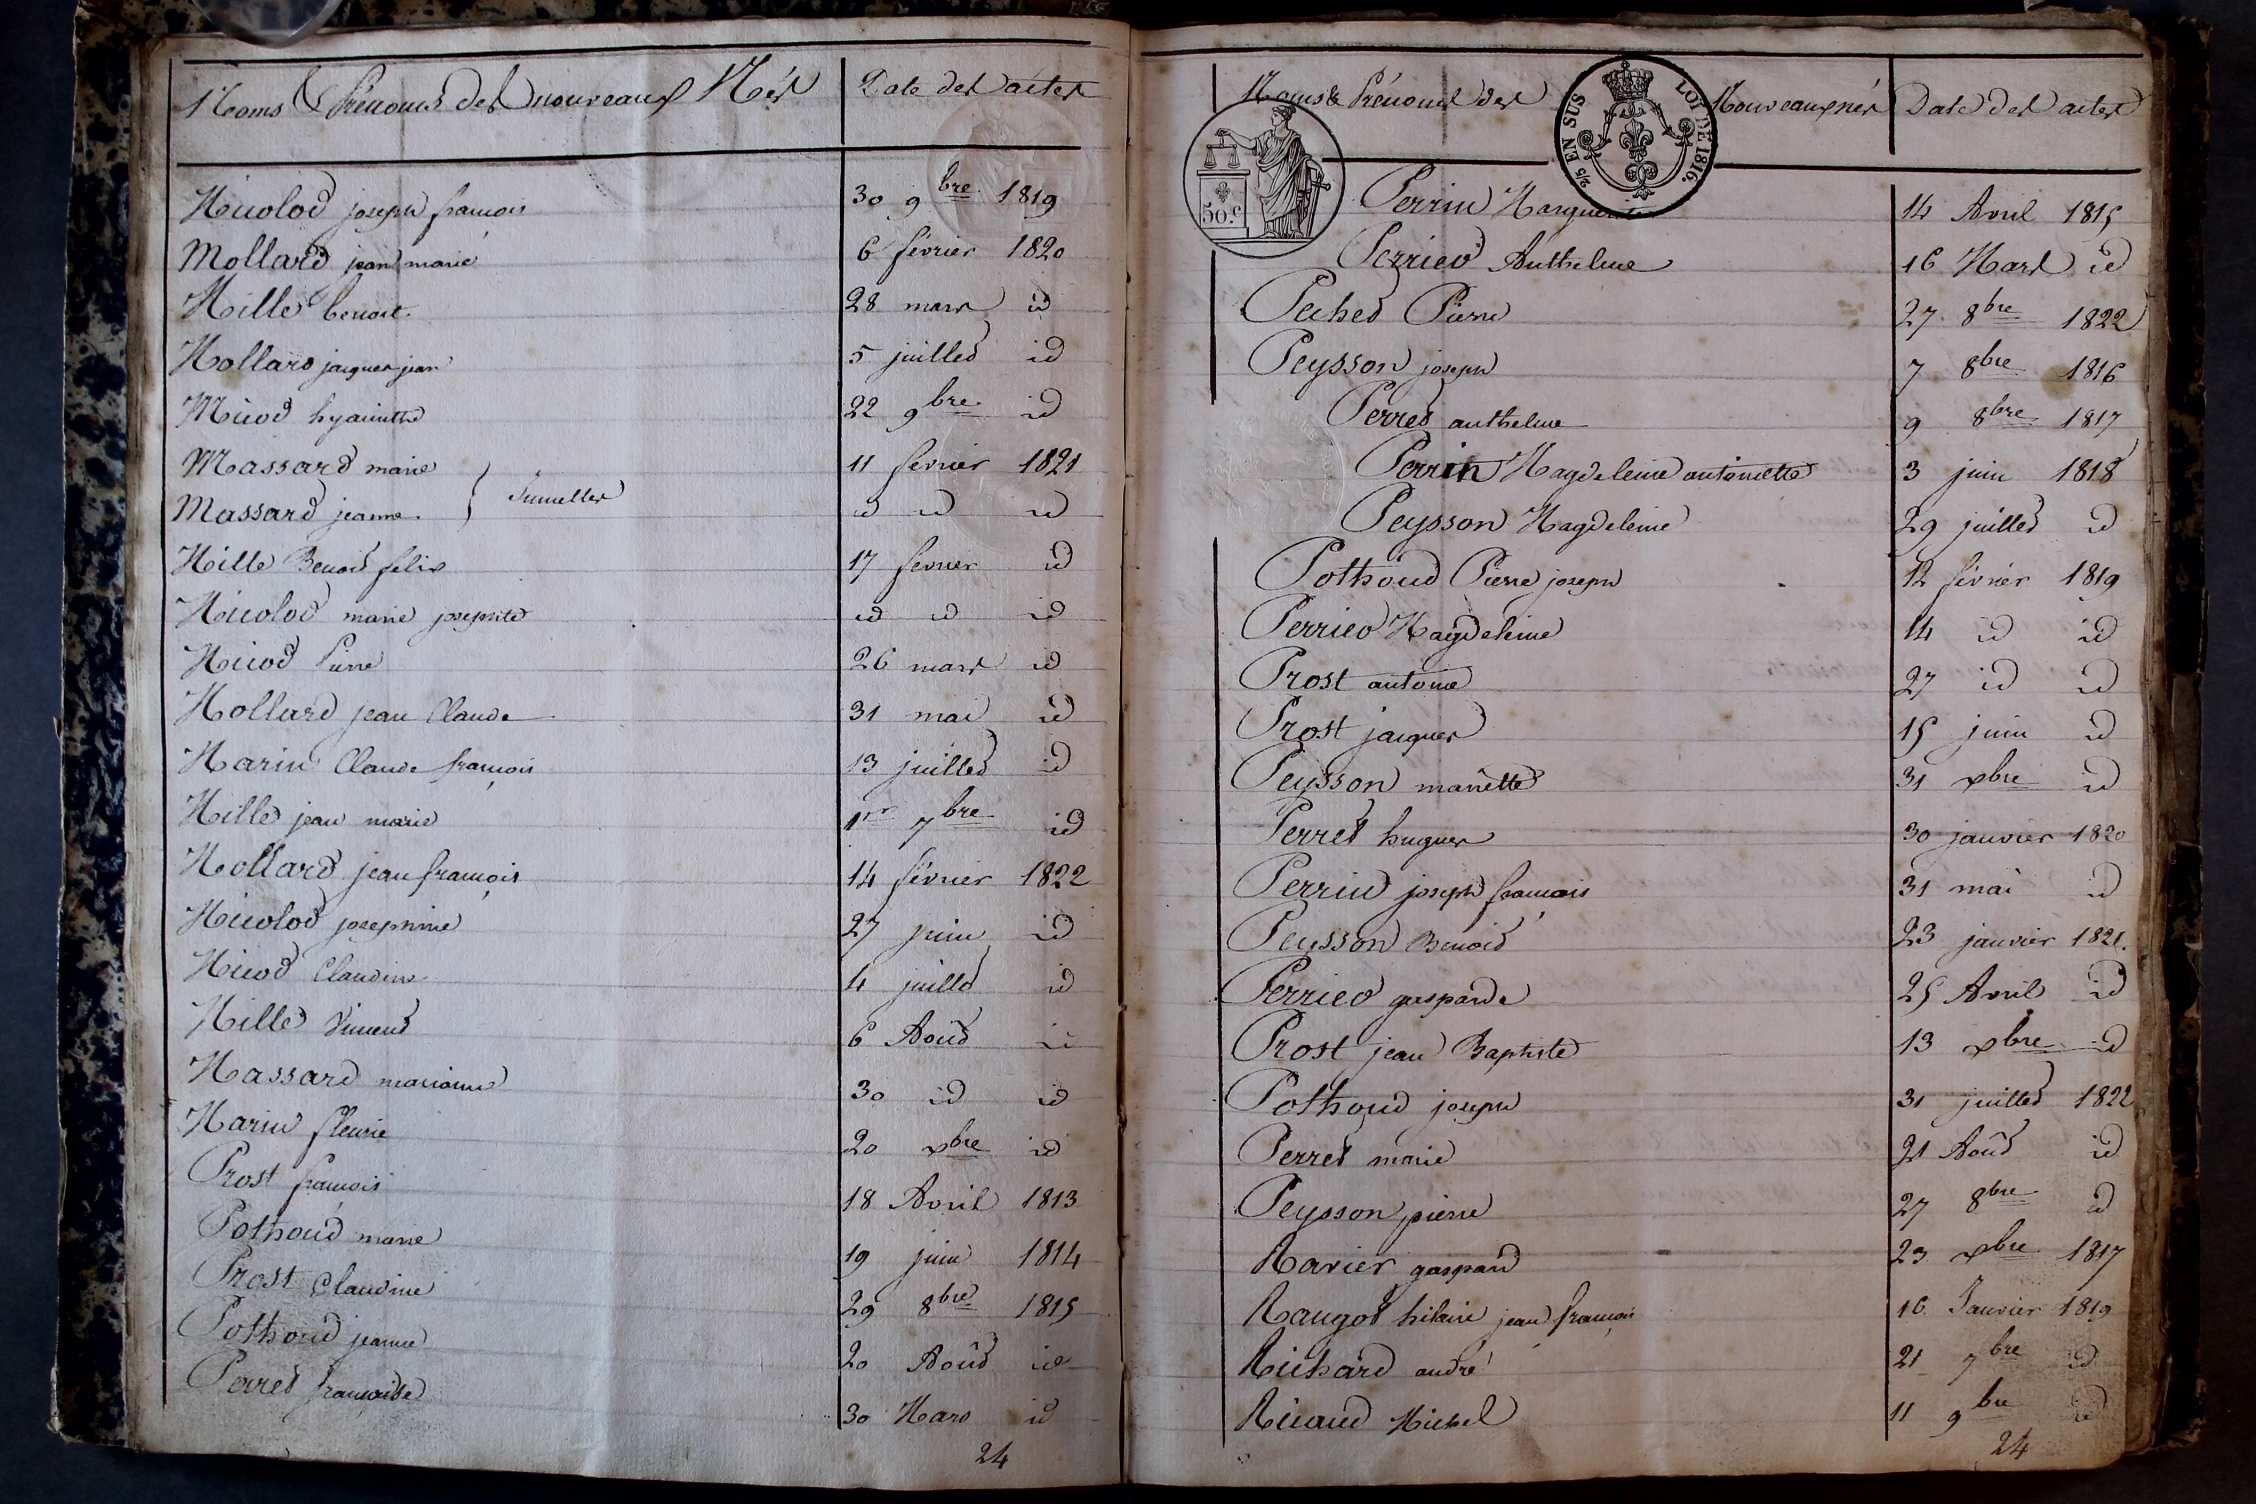 Noms & Prénoms des nouveaux Nés
Date des actes
Micolod joseph françois 30 9bre 1819
Mollard jean marie 6 février 1820
Mille benoit 28 mars id
Mollard jacques jean 5 juillet id
Micod hyacinthe 22 9bre id
Massard marie 11 fevrier 1821
Jumelles
Massard jeanne id id id
Mille Benoit felix 17 fevrier id
Micolod marie josephte id id id
Micod Pierre 26 mars id
Mollard jean Claude 31 mai id
Marin Claude françois 13 juillet id
Mille jean marie 1er 7bre id
Mollard jean françois 14 février 1822
Micolod josephine 27 juin id
Micod Claudine 4 juillet id
Mille Vincent 6 Août id
Massard marianne 30 id id
Marin fleurie 20 xbre id
Prost françois 18 Avril 1813
Pothoud marie 19 juin 1814
Prost Claudine 29 8bre 1815
Pothoud jeanne 20 Août id
Perret françoise 30 Mars id
24
Noms & Prénoms des Nouveaux nés
Date des actes
2/5 EN SUS LOI DE 1816.
50.c
Perrin Marguerite 14 Avril 1815
Perrier Anthelme 16 Mars id
Pechet Pierre 27 8bre 1822
Peysson joseph 7 8bre 1816
Perret anthelme 9 8bre 1817
Perrin Magdeleine antoinette 3 juin 1818
Peysson Magdeleine 29 juillet id
Pothoud Pierre joseph 12 février 1819
Perrier Magdeleine 14 id id
Prost antoine 27 id id
Prost jacques 15 juin id
Peysson mariette 31 xbre id
Perret hugues 30 janvier 1820
Perrin joseph françois 31 mai id
Peysson Benoit 23 janvier 1821.
Perrier gasparde 25 Avril id
Prost jean Baptiste 13 xbre id
Pothoud joseph 31 juillet 1822
Perret marie 21 Août id
Peysson pierre 27 8bre id
Ravier gaspard 23 xbre 1817
Raugot hilaire jean françois 16 Janvier 1819
Richard andré 21 7bre id
Ricaud Michel 11 9bre id
24